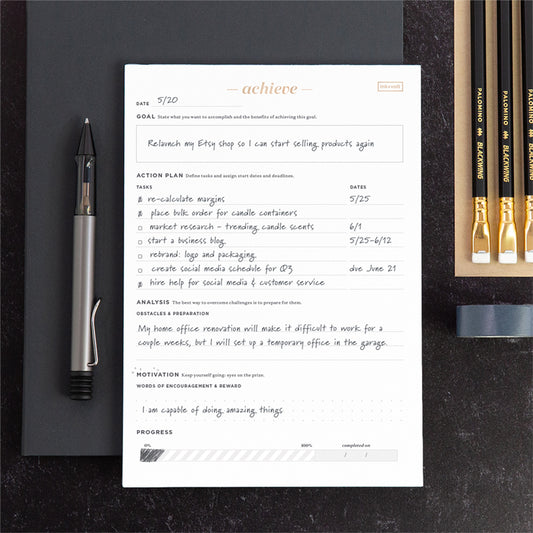 — achieve —
ink+craft
DATE 5/20
GOAL State what you want to accomplish and the benefits of achieving this goal.
Relaunch my Etsy shop so I can start selling products again
ACTION PLAN Define tasks and assign start dates and deadlines.
TASKS DATES
re-calculate margins 5/25
place bulk order for candle containers
market research - trending candle scents 6/1
start a business blog 5/25-6/12
rebrand: logo and packaging
create social media schedule for Q3 due June 21
hire help for social media & customer service
ANALYSIS The best way to overcome challenges is to prepare for them.
OBSTACLES & PREPARATION
My home office renovation will make it difficult to work for a
couple weeks, but I will set up a temporary office in the garage.
MOTIVATION Keep yourself going: eyes on the prize.
WORDS OF ENCOURAGEMENT & REWARD
I am capable of doing amazing things
PROGRESS
0% 100% completed on
/ /
PALOMINO BLACKWING
PALOMINO BLACKWING
PALOMINO BLACKWING